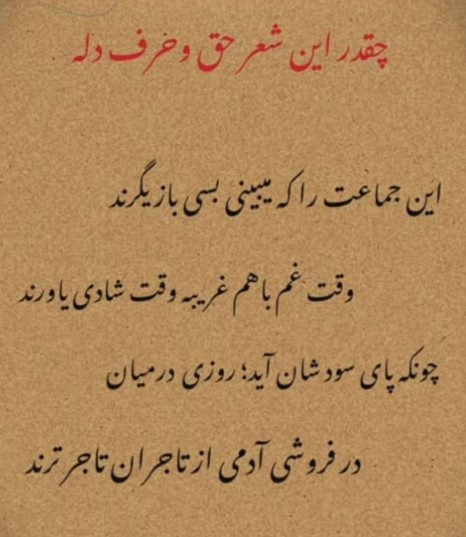 چقدر این شعر حق و حرف دله
این جماعت را که میبینی بسی بازیگرند
وقت غم باهم غریبه وقت شادی یاورند
چونکه پای سودشان آید؛ روزی درمیان
در فروشی آدمی از تاجران تاجرترند